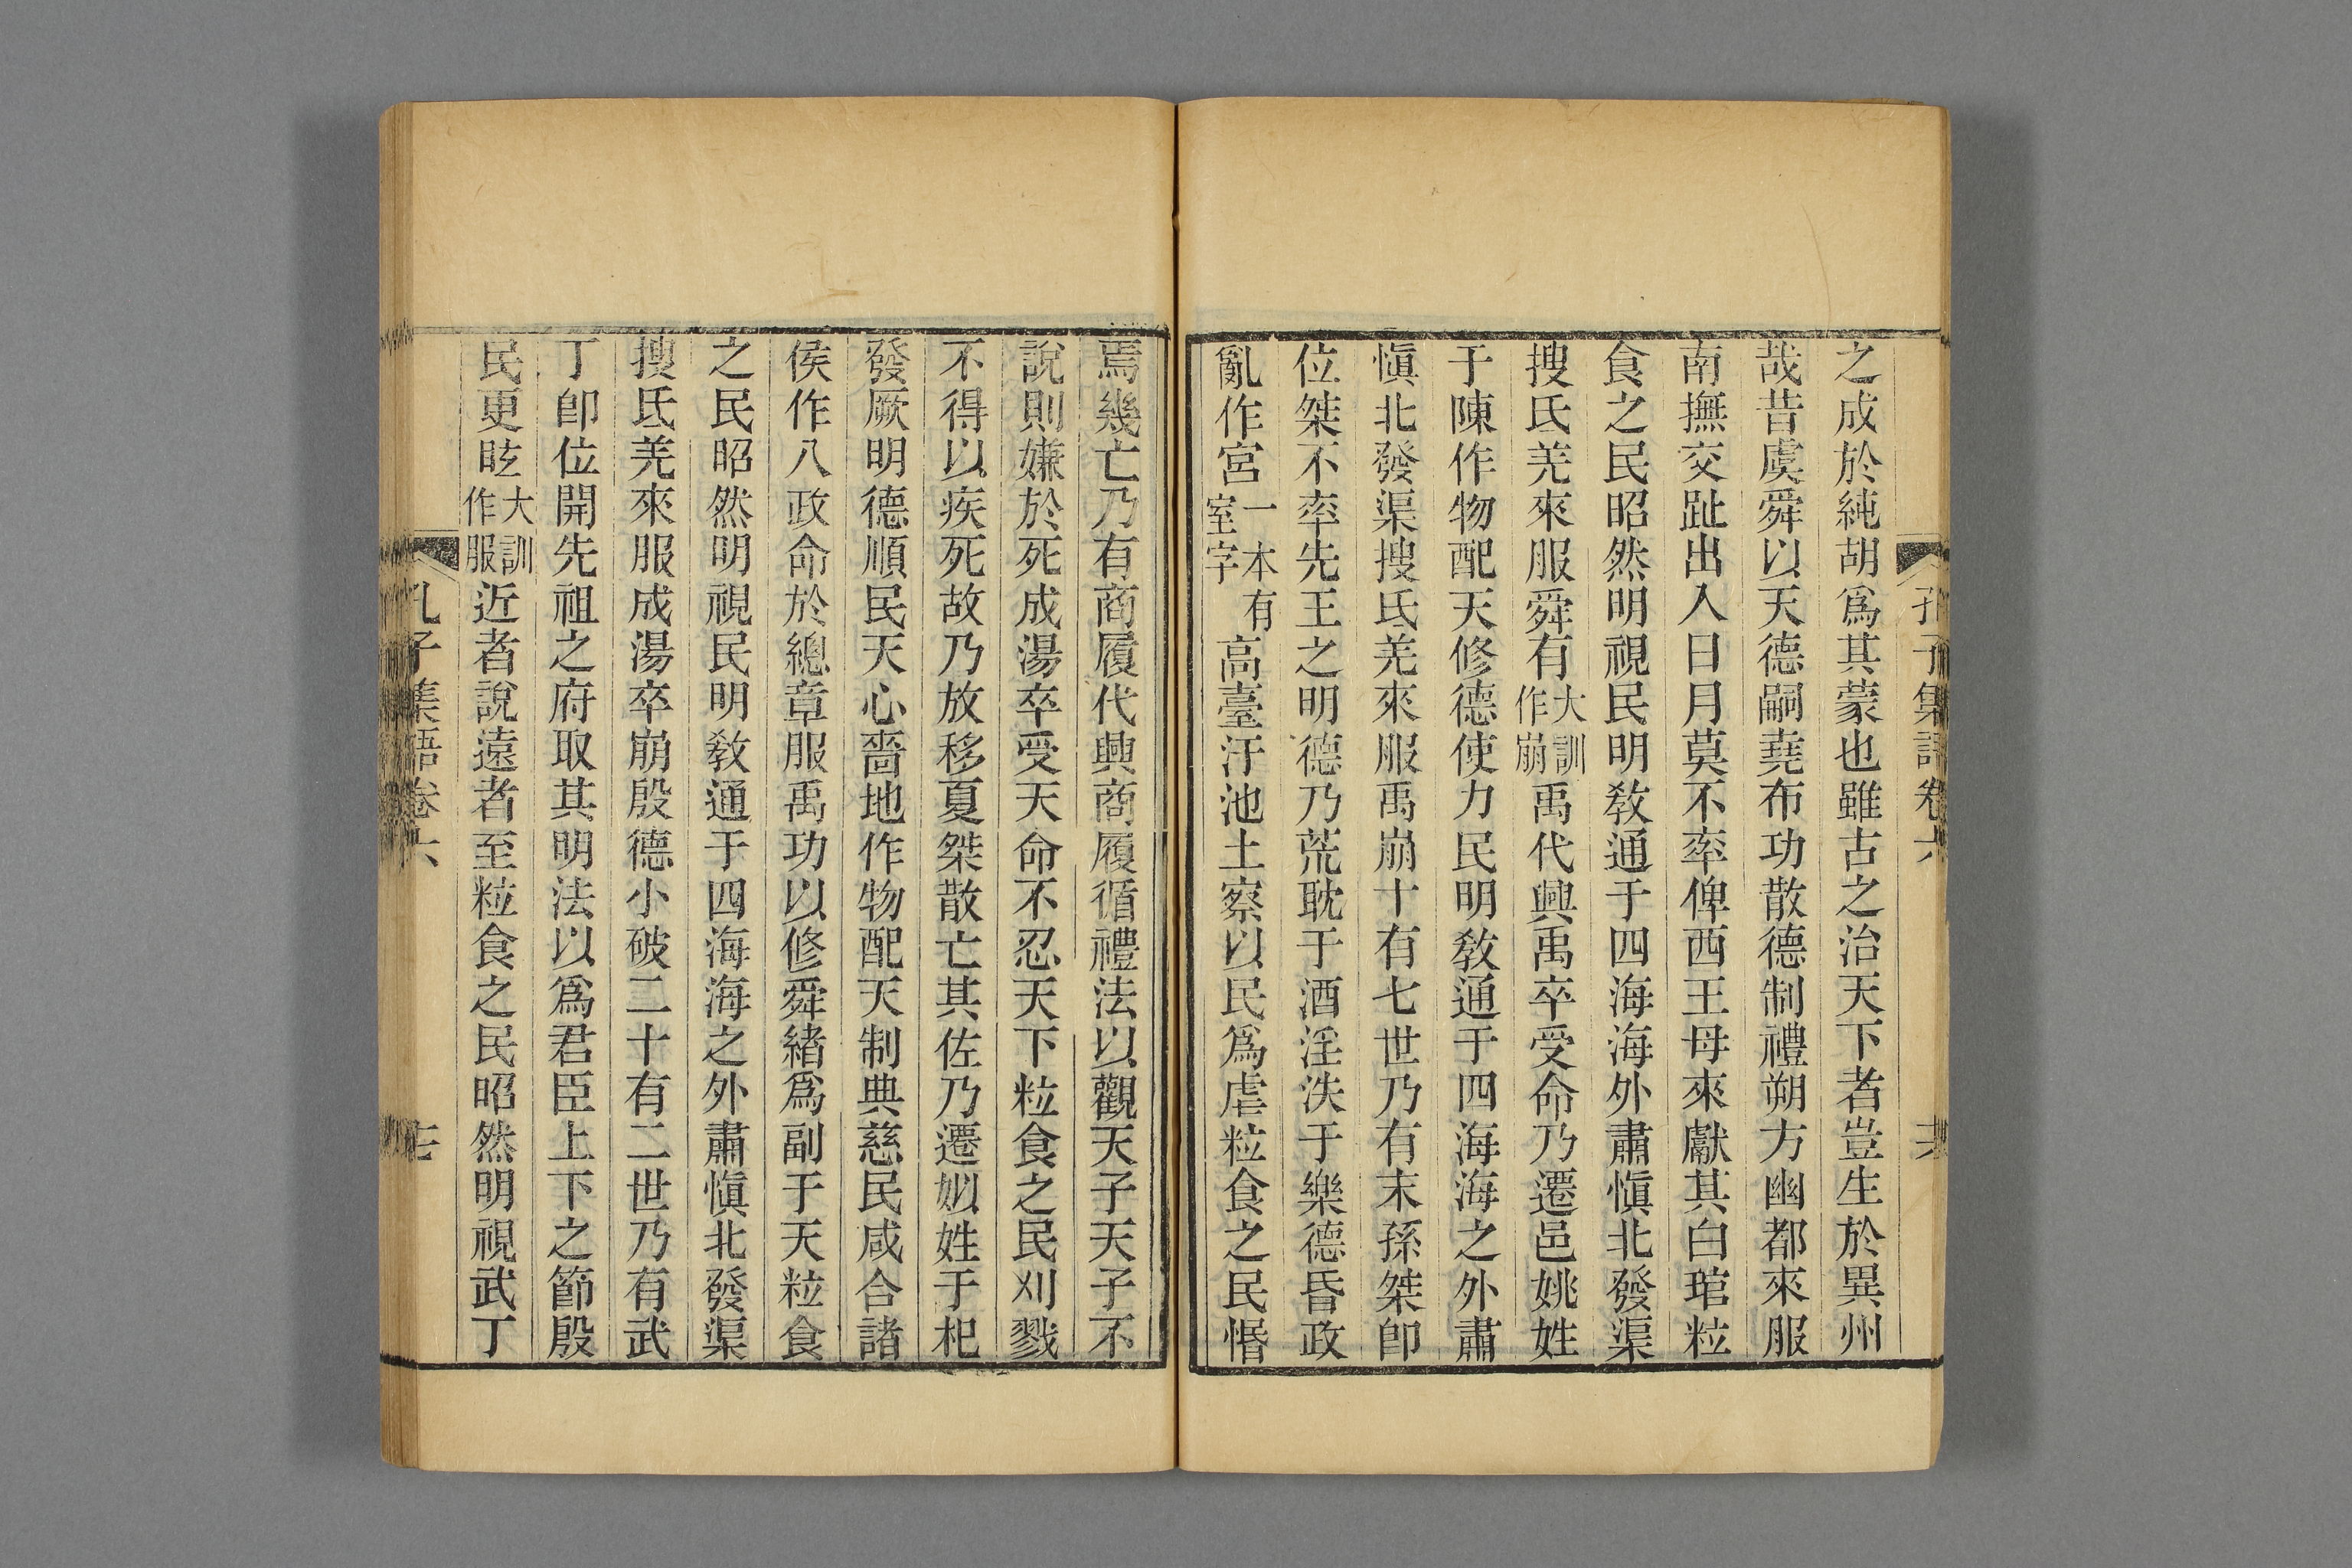 孔子集語卷六 十六
之成於純胡爲其蒙也雖古之治天下者豈生於異州
哉昔虞舜以天德嗣堯布功散德制禮朔方幽都來服
南撫交趾出入日月莫不率俾西王母來獻其白琯粒
食之民昭然明視民明教通于四海海外肅愼北發渠
搜氐羌來服舜有大訓作崩禹代興禹卒受命乃遷邑姚姓
于陳作物配天修德使力民明教通于四海海之外肅
愼北發渠搜氐羌來服禹崩十有七世乃有末孫桀卽
位桀不率先王之明德乃荒耽于酒淫泆于樂德昏政
亂作宮一本有室字高臺汙池土察以民爲虐粒食之民惛
焉幾亡乃有商履代興商履循禮法以觀天子天子不
說則嫌於死成湯卒受天命不忍天下粒食之民刈戮
不得以疾死故乃放移夏桀散亡其佐乃遷姒姓于杞
發厥明德順民天心嗇地作物配天制典慈民咸合諸
侯作八政命於總章服禹功以修舜緖爲副于天粒食
之民昭然明視民明教通于四海海之外肅愼北發渠
搜氐羌來服成湯卒崩殷德小破二十有二世乃有武
丁卽位開先祖之府取其明法以爲君臣上下之節殷
民更眩大訓作服近者說遠者至粒食之民昭然明視武丁
孔子集語卷六 十七